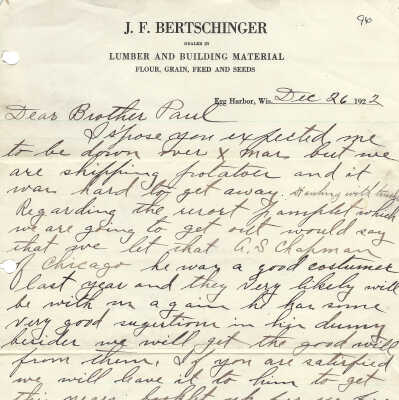 96
J. F. BERTSCHINGER
DEALER IN
LUMBER AND BUILDING MATERIAL
FLOUR, GRAIN, FEED AND SEEDS
Egg Harbor, Wis. Dec 26 1922
Dear Brother Paul
I s'pose you expected me
to be down over X mas but we
are shipping potatoes and it
was hard to get away.
Regarding the resort pamplet which
we are going to get out would say
that we let that A. S Chapman
of Chicago he was a good costumer
last year and they very likely will
be with us again he has some
very good sugertions in his dummy
besides we will get the good will
from them. If you are satisfied
we will leave it to him to get